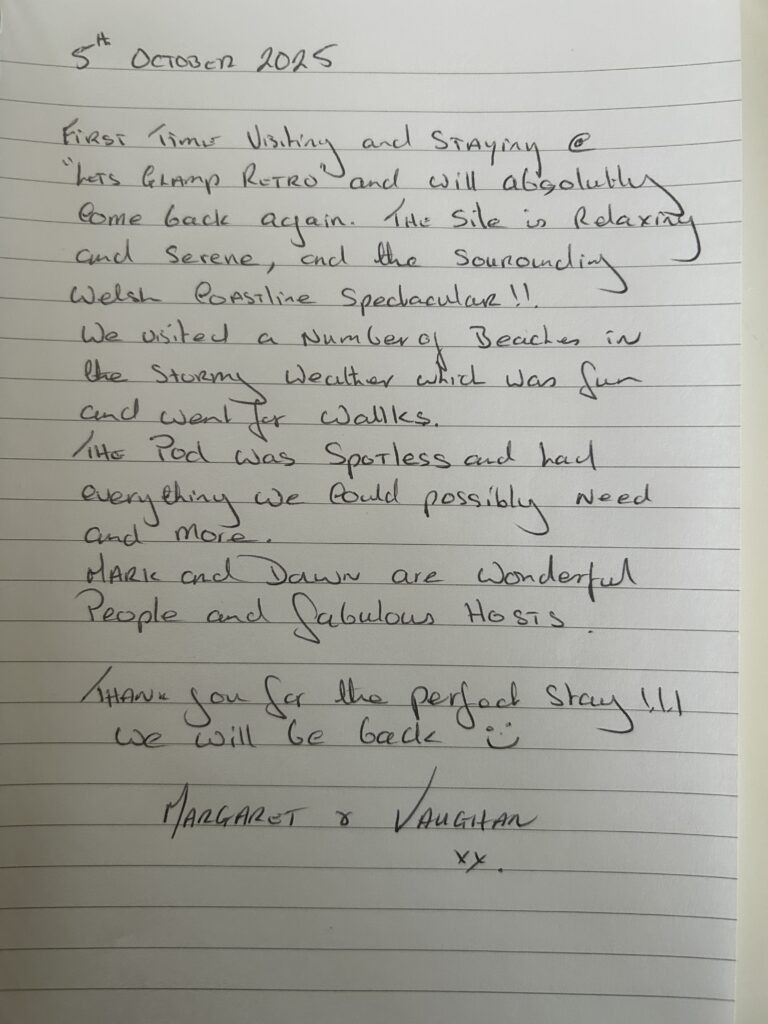 5th October 2025
First Time Visiting and Staying @
"Lets Glamp Retro" and will absolutly
Come back again. The Site is Relaxing
and Serene, and the Sourounding
Welsh Coastline Spectacular!!.
We visited a Number of Beaches in
the Stormy Weather which was fun
and went for Wallks.
The Pod was Spotless and had
everything we Could possibly Need
and more.
Mark and Dawn are Wonderful
People and fabulous Hosts.
Thank you for the perfect Stay!!!!
We will be back :)
Margaret & Vaughan
xx.